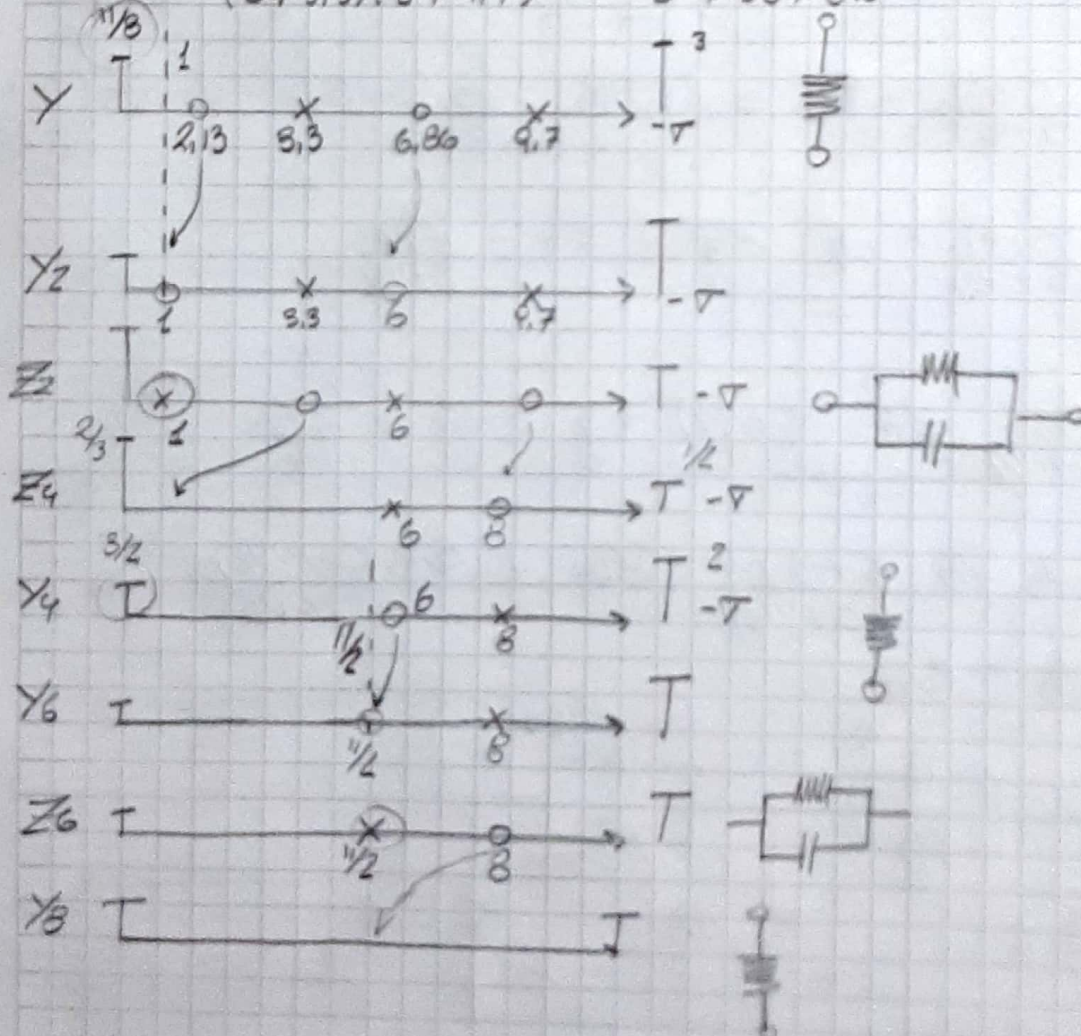 11/8
1
3
Y
2,13 3,3 6,86 9,7 -σ
Y2
1 3,3 6 9,7 -σ
Z2
1 6 -σ
2/3
1/2
Z4
6 8 -σ
3/2
2
Y4
6 -σ
11/2 8
Y6
11/2 8
Z6
11/2 8
Y8